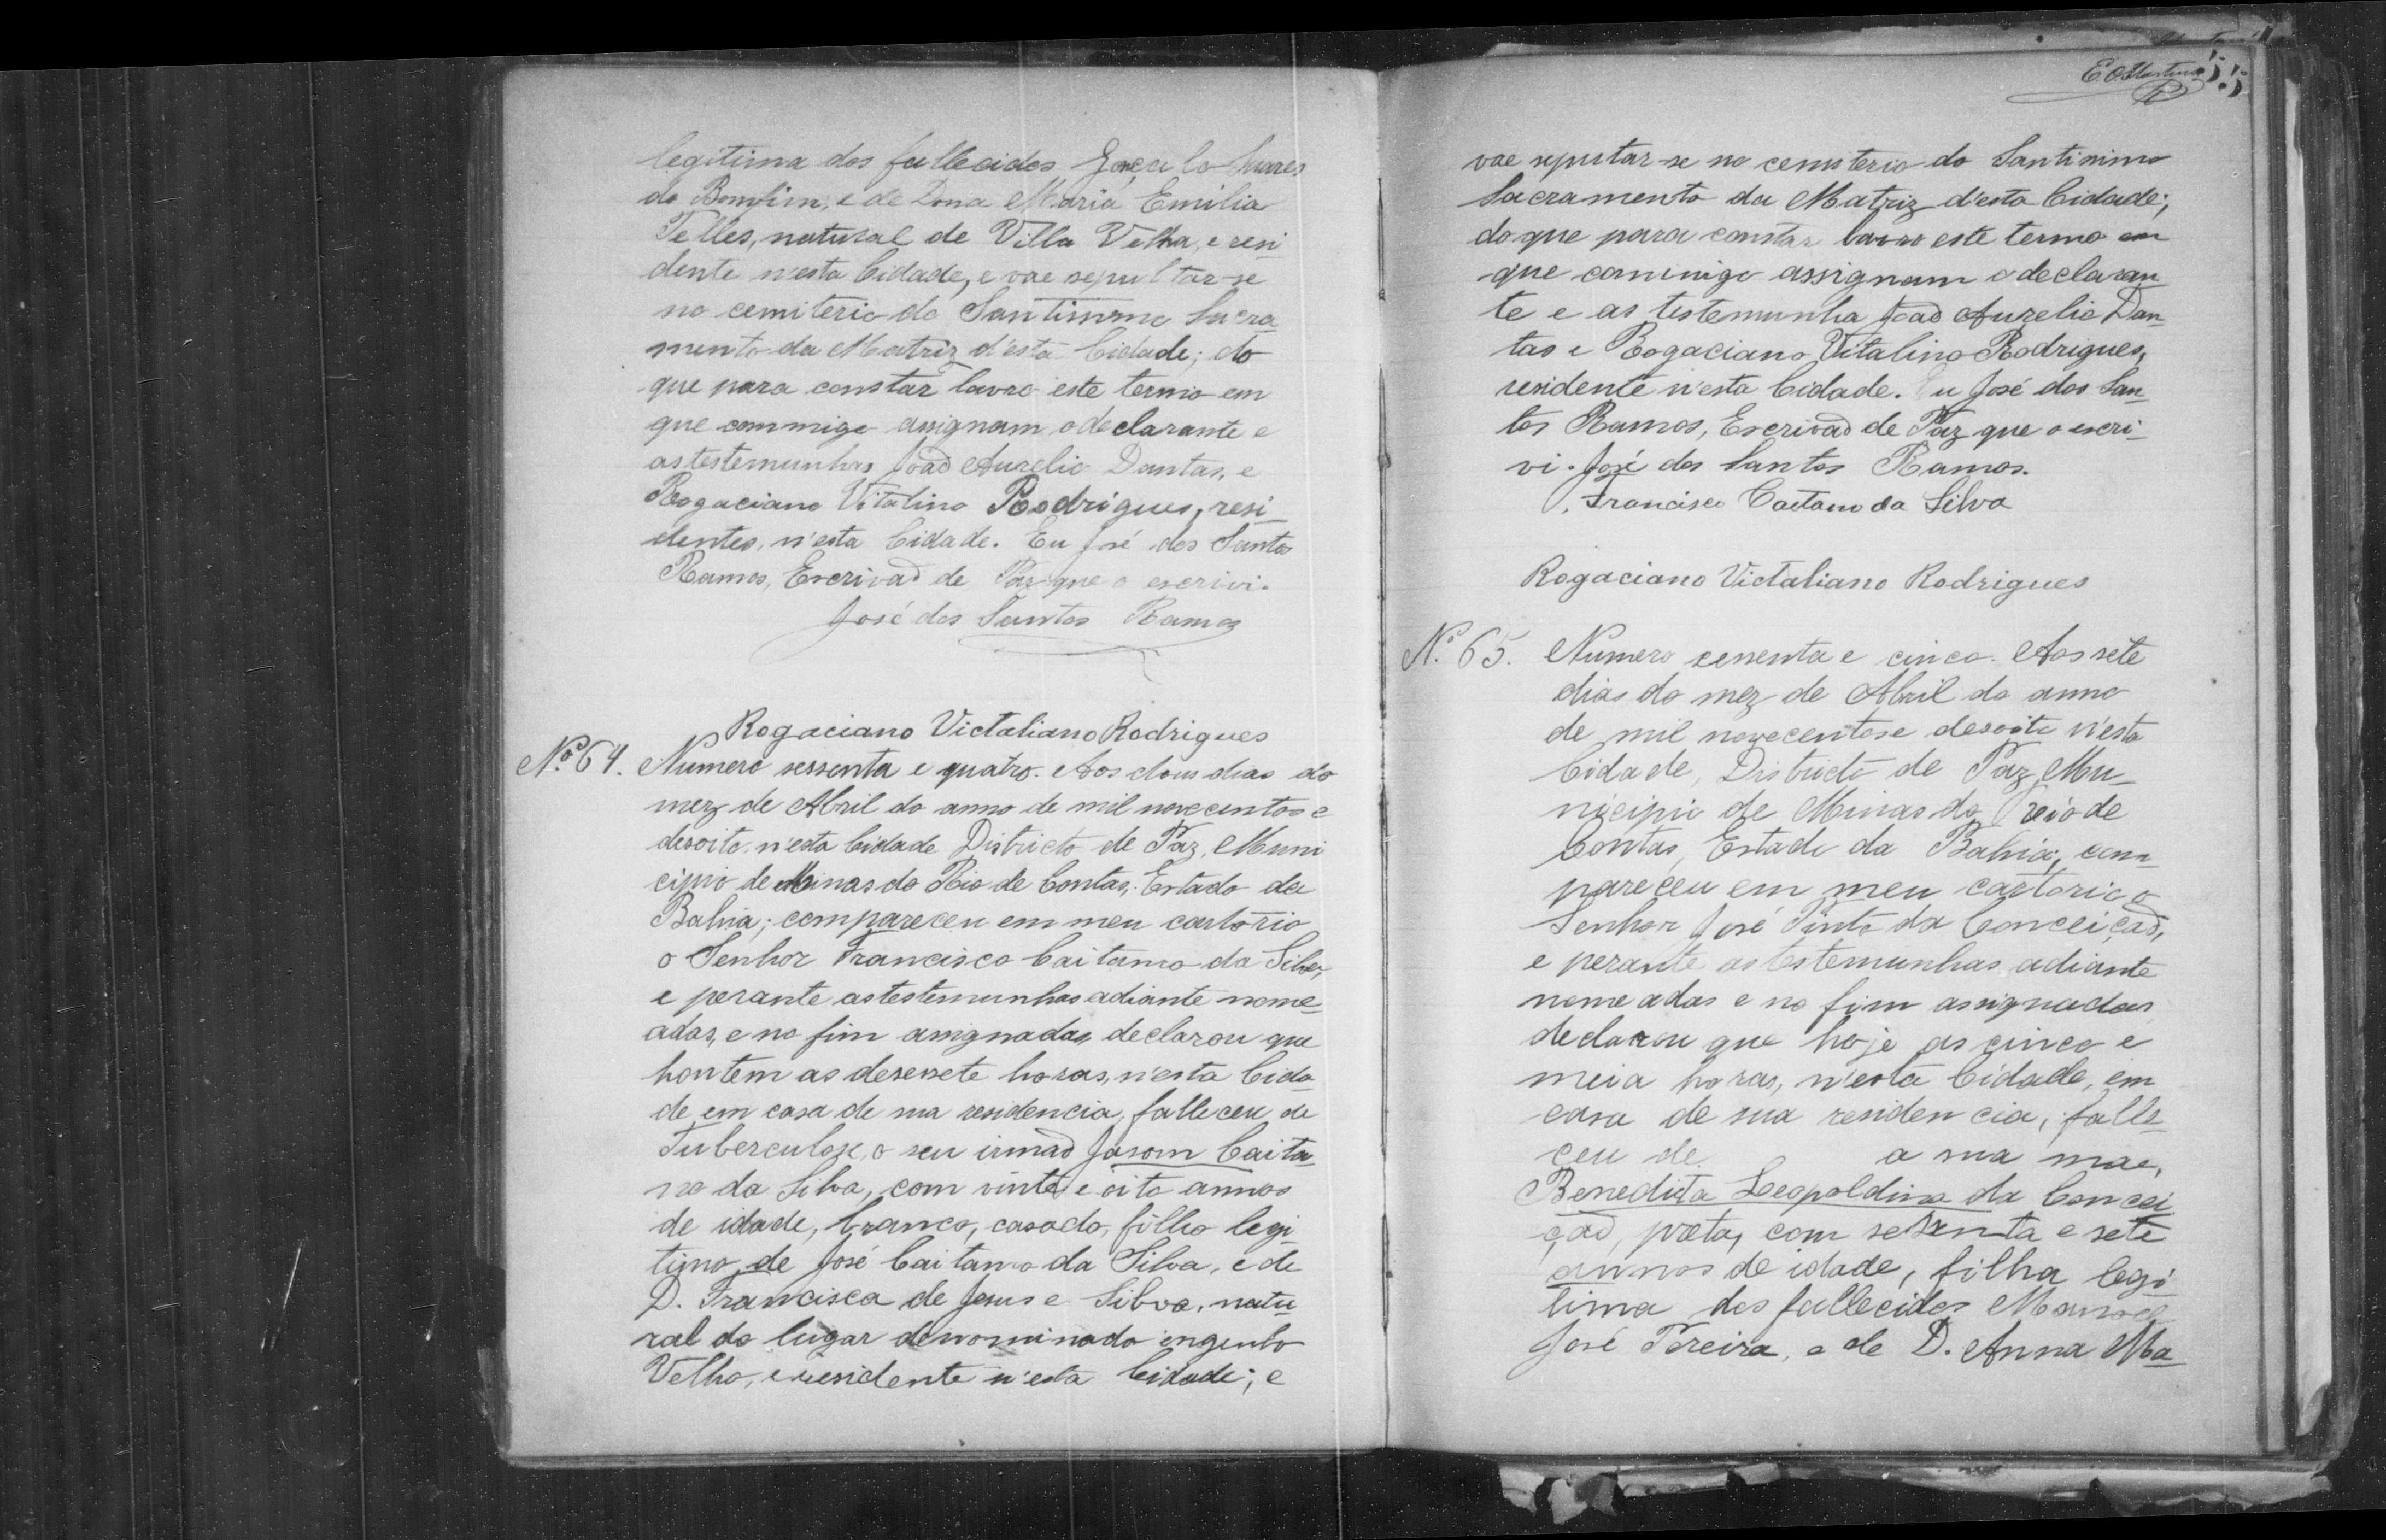 legitima dos fallecidos Gonçalo Soares
do Bomfim, e de Dona Maria Emilia
Telles, natural de Villa Velha, e resi
dente n'esta Cidade, e vae sepultar-se
no cemiterio do Santissimo Sacra
mento da Matriz d'esta Cidade; do
que para constar lavro este termo em
que commigo assignam o declarante e
as testemunhas João Aurelio Dantas, e
Rogaciano Vitalino Rodrigues, resi_
dentes, n'esta Cidade. Eu José dos Santos
Ramos, Escrivaõ de Paz que o escrivi.
José dos Santos Ramos
Rogaciano Victaliano Rodrigues
Nº 64. Numero sessenta e quatro. Aos dous dias do
mez de Abril do anno de mil novecentos e
desoito n'esta Cidade Districto de Paz, Muni
cipio de Minas do Rio de Contas, Estado da
Bahia; compareceu em meu cartorio
o Senhor Francisco Caitano da Silva,
e perante as testemunhas adiante nome_
adas, e no fim assignadas, declarou que
hontem as desesete horas, n'esta Cida
de em casa de sua residencia, falleceu de
Tuberculose, o seu irmaõ Jasom Caita_
no da Silva, com vinte e oito annos
de idade, branco, casado, filho legi_
timo de José Caitano da Silva, e de
D. Francisca de Jesus e Silva, natu
ral do lugar denominado ingenho
Velho, e residente n'esta Cidade; e
E. O. Martins 55
vae sepultar-se no cemiterio do Santissimo
Sacramento da Matriz d'esta Cidade;
do que para constar lavro este termo em
que commigo assignam o declaran
te e as testemunha João Aurelio Dan_
tas e Rogaciano Vitalino Rodrigues,
residente n'esta Cidade. Eu José dos San_
tos Ramos, Escrivaõ de Paz que o escri_
vi. José dos Santos Ramos.
Francisco Caetano da Silva
Rogaciano Victaliano Rodrigues
Nº 65. Numero cessenta e cinco. Aos sete
dias do mez de Abril do anno
de mil novecentos e desoito n'esta
Cidade, Districto de Paz, Mu_
nicipio de Minas do Rio de
Contas, Estado da Bahia; com_
pareceu em meu cartorio o
Senhor José Pinto da Conceiçaõ,
e perante as testemunhas adiante
nomeadas e no fim assignadas
declarou que hoje as cinco e
meia horas, n'esta Cidade, em
casa de sua residencia, falle_
ceu de a sua mae,
Benedicta Leopoldina da Concei
çaõ, preta, com sessenta e sete
annos de idade, filha legi
tima dos fallecidos Manoel
José Pereira, e de D. Anna Ma_